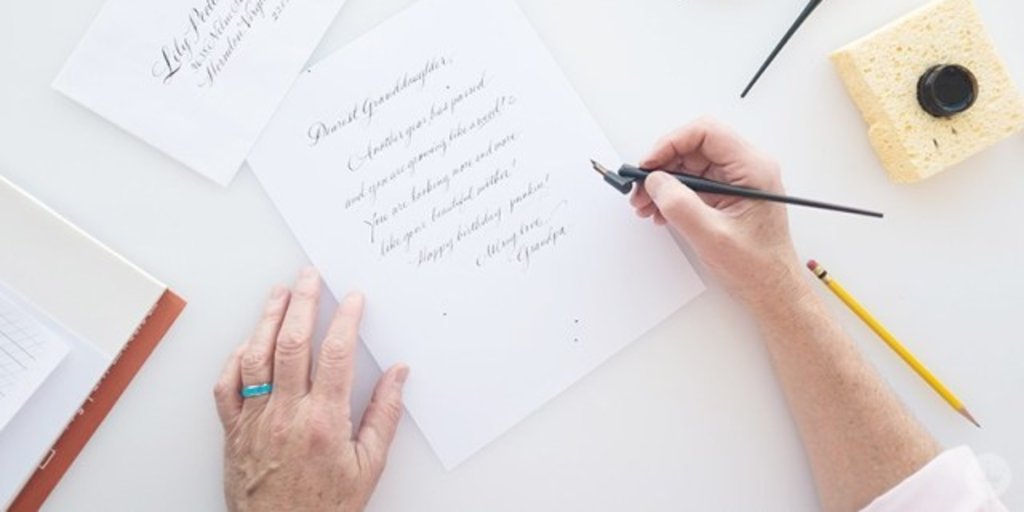 Lily
Dearest Granddaughter,
Another year has passed
and you are growing like a weed!
You are looking more and more
like your beautiful mother!
Happy birthday punkin!
All my love,
Grandpa